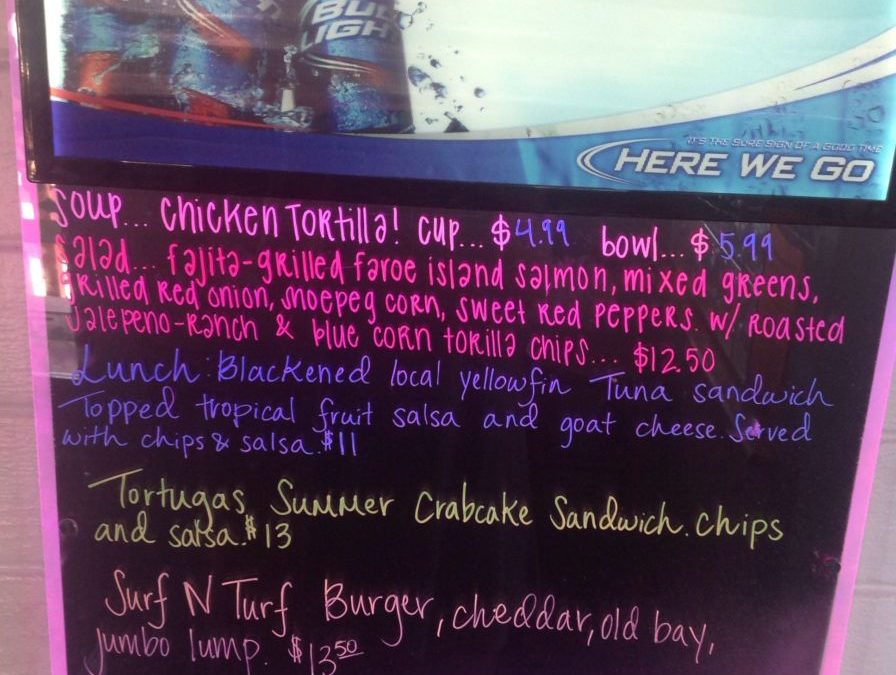 BUD
LIGHT
IT'S THE SURE SIGN OF A GOOD TIME
HERE WE GO
Soup... Chicken Tortilla! cup... $4.99 bowl... $5.99
Salad... fajita-grilled faroe island salmon, mixed greens,
grilled red onion, shoepeg corn, sweet red peppers w/ roasted
Jalepeno-Ranch & blue corn torilla chips... $12.50
Lunch: Blackened local yellowfin Tuna sandwich
Topped tropical fruit salsa and goat cheese. Served
with chips & salsa. $11
Tortugas Summer Crabcake Sandwich. Chips
and salsa. $13
Surf N Turf Burger, cheddar, old bay,
jumbo lump. $13.50